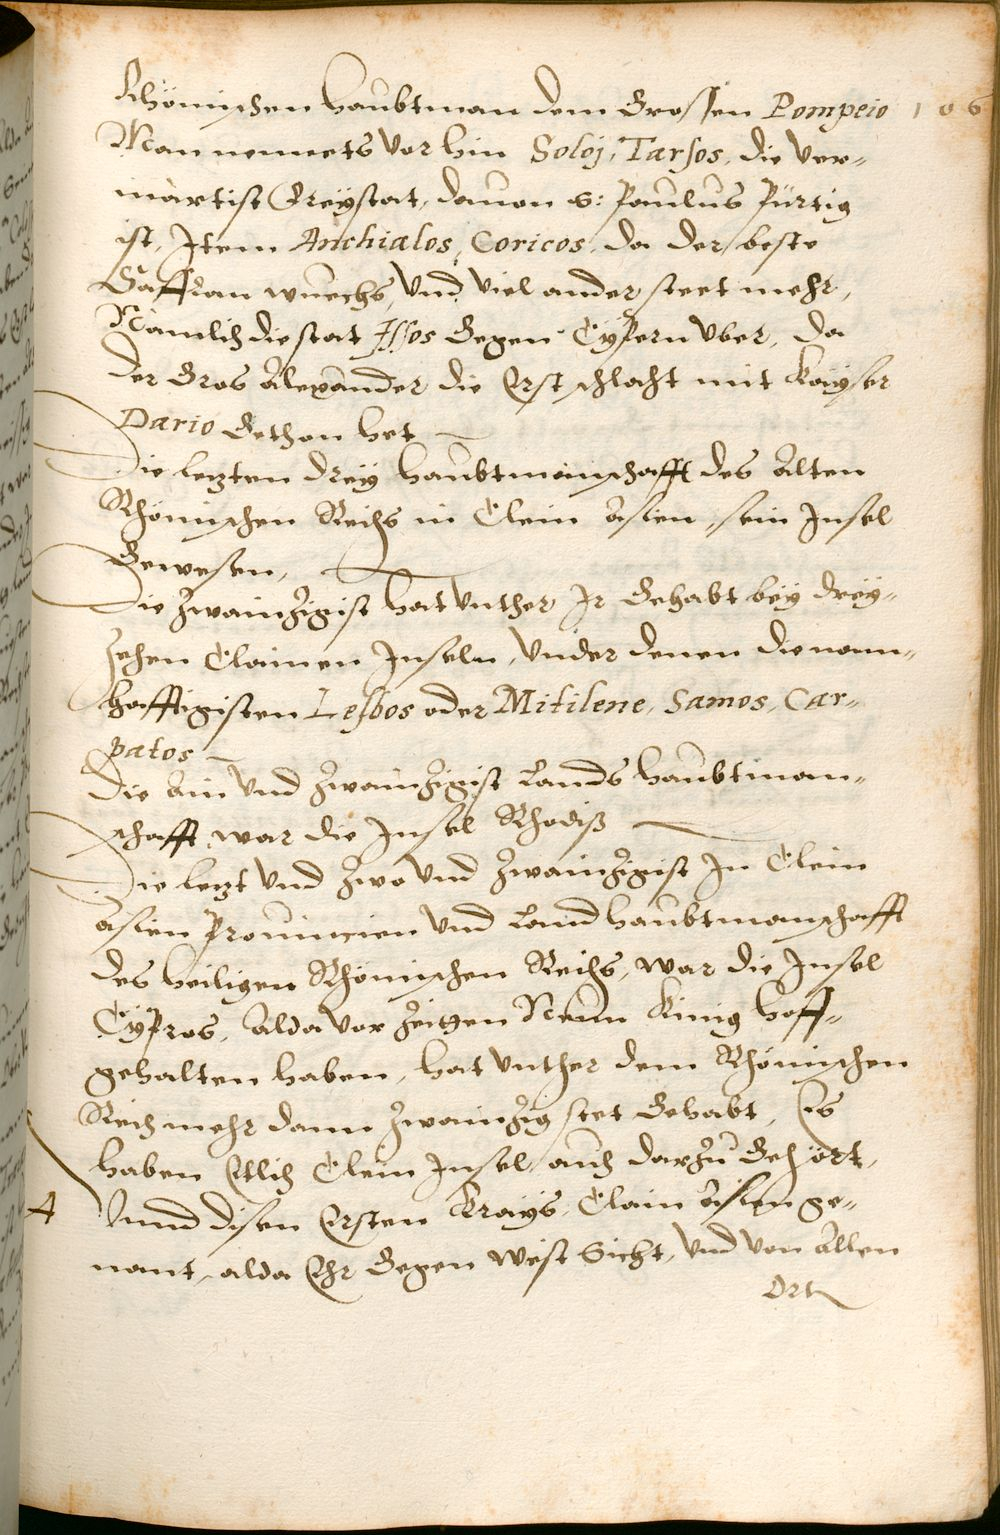 Rhömischen haubtman dem Grossen Pompeio 106
Man nennets vor hin Soloj, Tarsos, die ver-
märtist Freystat, dauon S: Paulus Pürtig
ist, Item Anchialos, Coricos, da der beste
Saffran wuechs, Vnd viel ander steet mehr,
Nämlich die stat Issos Gegen Cÿpern vber, da
der Gros Alexander die Erst schlacht mit Kayser
Dario Gethon het
Die letzten dreÿ haubtmanschafft des Alten
Rhömischen Reichs in Clein Asien, sein Insel
Gewesen,
Die Zwainzigist hat vnther Ir Gehabt bey dreÿ-
zehen Clainen Inseln, Vnder denen die nam-
hafftigisten Lesbos oder Mitilene, Samos, Car-
patos
Die Ain Vnd Zwainzigist Lands haubtman-
schafft, war die Insel Rhodiß
Die letzt Vnd Zwo Vnd Zwainzigist In Clein
Asien Prouincien Vnd Landhaubtmanschafft
des heiligen Rhömischen Reichs, war die Insel
Cÿpros, Alda vor Zeitten Neun Künig hoff-
gehalten haben, hat vnther dem Rhömischen
Reich mehr dann Zwainzig stet Gehabt, Es
haben Etlich Clein Insel, auch darzu Gehört,
A Vnnd disen Ersten Krayß, Clain Asien ge-
nant, alda Ehr Gegen West Sicht, Vnd von Allen
Ort